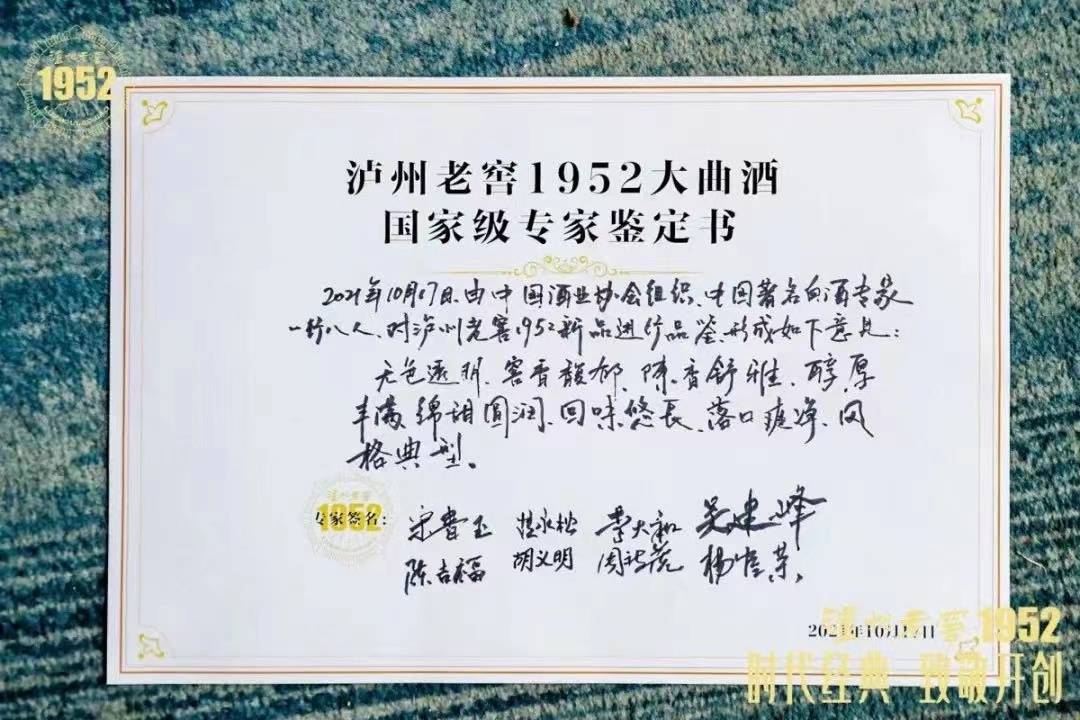 泸州老窖
1952
泸州老窖1952大曲酒
国家级专家鉴定书
2021年10月17日.由中国酒业协会组织、中国著名白酒专家
一行八人、对泸州老窖1952新品进行品鉴.形成如下意见:
无色透明、窖香馥郁、陈香舒雅、醇厚
丰满、绵甜圆润、回味悠长、落口爽净、风
格典型。
泸州老窖
1952
专家签名:
李大和 吴建峰
陈吉福 胡义明
2021年10月17日
泸州老窖1952
时代经典 致敬开创